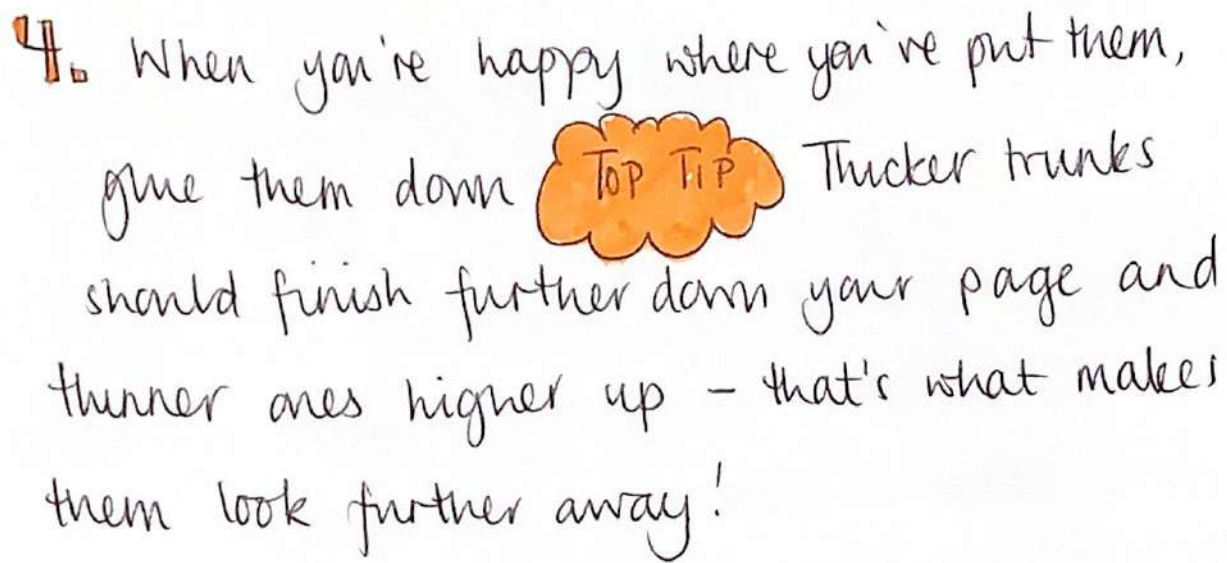 4. When you're happy where you've put them,
glue them down TOP TIP Thicker trunks
should finish further down your page and
thinner ones higher up – that's what makes
them look further away!